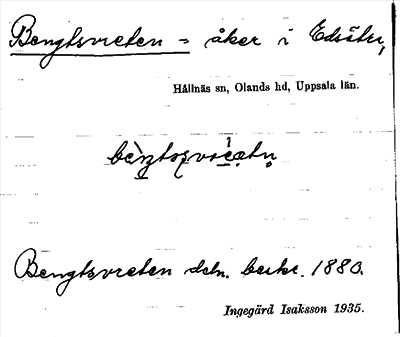 Bengtsvreten = åker i Edsäter,
Hållnäs sn, Olands hd, Uppsala län.
Bengtsvreten detn. beskr. 1880.
Ingegärd Isaksson 1935.